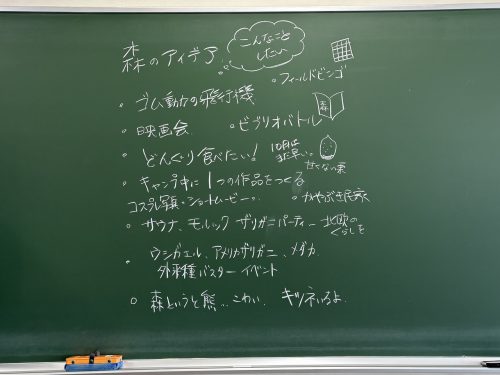 森のアイデア
こんなこと
したい
・フィールドビンゴ
・ゴム動力の飛行機
・映画会
・ビブリオバトル
森
・どんぐり食べたい!
10月は
まだ早い。
甘くない栗
・キャンプ中に1つの作品をつくる
コスプレ写真・ショートムービー。
・かやぶき民家
・サウナ、モルック ザリガニパーティー 北欧の
くらしを
・ウシガエル、アメリカザリガニ、メダカ
外来種バスターイベント
○ 森というと熊... こわい、 キツネいるよ.